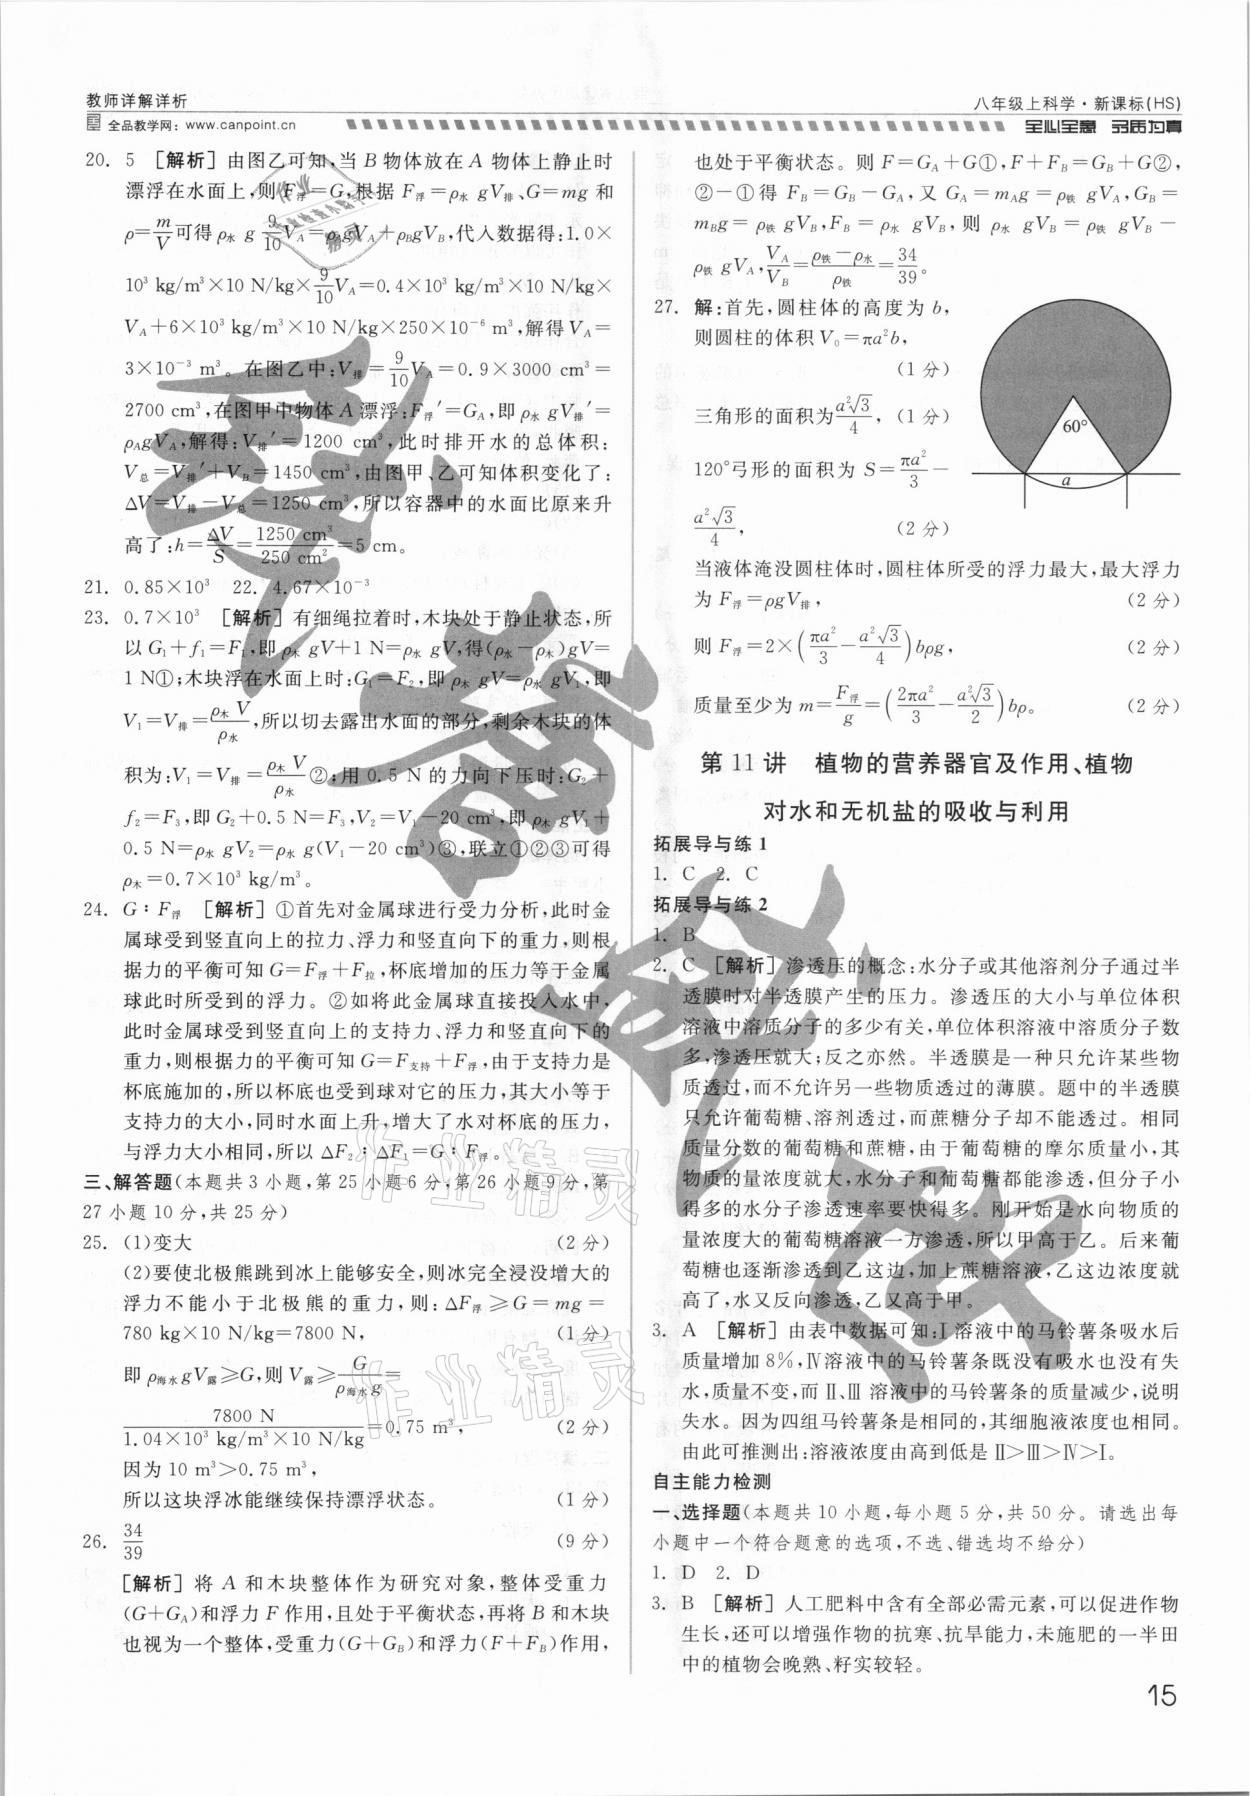 教师详解详析
八年级上科学·新课标(HS)
全品教学网：www.canpoint.cn
全心全意 品质为真
20. 5 [解析] 由图乙可知,当 B 物体放在 A 物体上静止时
漂浮在水面上,则 F浮=G,根据 F浮=ρ水 gV排、G=mg 和
ρ=m/V 可得 ρ水 g 9/10 VA=ρA gVA+ρBgVB,代入数据得:1.0×
10³ kg/m³×10 N/kg×9/10 VA=0.4×10³ kg/m³×10 N/kg×
VA+6×10³ kg/m³×10 N/kg×250×10⁻⁶ m³,解得 VA=
3×10⁻³ m³。在图乙中:V排=9/10 VA=0.9×3000 cm³=
2700 cm³,在图甲中物体 A 漂浮:F浮′=GA,即 ρ水 gV排′=
ρAgVA,解得:V排′=1200 cm³,此时排开水的总体积:
V总=V排′+VB=1450 cm³,由图甲、乙可知体积变化了:
ΔV=V排-V总=1250 cm³,所以容器中的水面比原来升
高了:h=ΔV/S=1250 cm³/250 cm²=5 cm。
21. 0.85×10³ 22. 4.67×10⁻³
23. 0.7×10³ [解析] 有细绳拉着时,木块处于静止状态,所
以 G₁+f₁=F₁,即 ρ木 gV+1 N=ρ水 gV,得(ρ水-ρ木)gV=
1 N①;木块浮在水面上时:G₁=F₂,即 ρ木 gV=ρ水 gV₁,即
V₁=V排=ρ木 V/ρ水,所以切去露出水面的部分,剩余木块的体
积为:V₁=V排=ρ木 V/ρ水②;用 0.5 N 的力向下压时:G₂+
f₂=F₃,即 G₂+0.5 N=F₃,V₂=V₁-20 cm³,即 ρ木 gV₁+
0.5 N=ρ水 gV₂=ρ水 g(V₁-20 cm³)③,联立①②③可得
ρ木=0.7×10³ kg/m³。
24. G∶F浮 [解析] ①首先对金属球进行受力分析,此时金
属球受到竖直向上的拉力、浮力和竖直向下的重力,则根
据力的平衡可知 G=F浮+F拉,杯底增加的压力等于金属
球此时所受到的浮力。②如将此金属球直接投入水中,
此时金属球受到竖直向上的支持力、浮力和竖直向下的
重力,则根据力的平衡可知 G=F支持+F浮,由于支持力是
杯底施加的,所以杯底也受到球对它的压力,其大小等于
支持力的大小,同时水面上升,增大了水对杯底的压力,
与浮力大小相同,所以 ΔF₂∶ΔF₁=G∶F浮。
三、解答题(本题共 3 小题,第 25 小题 6 分,第 26 小题 9 分,第
27 小题 10 分,共 25 分)
25. (1)变大 (2 分)
(2)要使北极熊跳到冰上能够安全,则冰完全浸没增大的
浮力不能小于北极熊的重力,则:ΔF浮≥G=mg=
780 kg×10 N/kg=7800 N, (1 分)
即 ρ海水gV露≥G,则 V露≥G/ρ海水g=
7800 N/1.04×10³ kg/m³×10 N/kg=0.75 m³, (2 分)
因为 10 m³>0.75 m³,
所以这块浮冰能继续保持漂浮状态。 (1 分)
26. 34/39 (9 分)
[解析] 将 A 和木块整体作为研究对象,整体受重力
(G+GA)和浮力 F 作用,且处于平衡状态,再将 B 和木块
也视为一个整体,受重力(G+GB)和浮力(F+FB)作用,
也处于平衡状态。则 F=GA+G①,F+FB=GB+G②,
②-①得 FB=GB-GA,又 GA=mAg=ρ铁 gVA,GB=
mBg=ρ铁 gVB,FB=ρ水 gVB,则 ρ水 gVB=ρ铁 gVB-
ρ铁 gVA,VA/VB=ρ铁-ρ水/ρ铁=34/39。
27. 解:首先,圆柱体的高度为 b,
则圆柱的体积 V₀=πa²b,
(1 分)
三角形的面积为a²√3/4, (1 分)
120°弓形的面积为 S=πa²/3-
a²√3/4, (2 分)
60°
a
当液体淹没圆柱体时,圆柱体所受的浮力最大,最大浮力
为 F浮=ρgV排, (2 分)
则 F浮=2×(πa²/3-a²√3/4)bρg, (2 分)
质量至少为 m=F浮/g=(2πa²/3-a²√3/2)bρ。 (2 分)
第 11 讲 植物的营养器官及作用、植物
对水和无机盐的吸收与利用
拓展导与练 1
1. C 2. C
拓展导与练 2
1. B
2. C [解析] 渗透压的概念:水分子或其他溶剂分子通过半
透膜时对半透膜产生的压力。渗透压的大小与单位体积
溶液中溶质分子的多少有关,单位体积溶液中溶质分子数
多,渗透压就大;反之亦然。半透膜是一种只允许某些物
质透过,而不允许另一些物质透过的薄膜。题中的半透膜
只允许葡萄糖、溶剂透过,而蔗糖分子却不能透过。相同
质量分数的葡萄糖和蔗糖,由于葡萄糖的摩尔质量小,其
物质的量浓度就大,水分子和葡萄糖都能渗透,但分子小
得多的水分子渗透速率要快得多。刚开始是水向物质的
量浓度大的葡萄糖溶液一方渗透,所以甲高于乙。后来葡
萄糖也逐渐渗透到乙这边,加上蔗糖溶液,乙这边浓度就
高了,水又反向渗透,乙又高于甲。
3. A [解析] 由表中数据可知:Ⅰ溶液中的马铃薯条吸水后
质量增加 8%,Ⅳ溶液中的马铃薯条既没有吸水也没有失
水,质量不变,而Ⅱ、Ⅲ溶液中的马铃薯条的质量减少,说明
失水。因为四组马铃薯条是相同的,其细胞液浓度也相同。
由此可推测出:溶液浓度由高到低是Ⅱ>Ⅲ>Ⅳ>Ⅰ。
自主能力检测
一、选择题(本题共 10 小题,每小题 5 分,共 50 分。请选出每
小题中一个符合题意的选项,不选、错选均不给分)
1. D 2. D
3. B [解析] 人工肥料中含有全部必需元素,可以促进作物
生长,还可以增强作物的抗寒、抗旱能力,未施肥的一半田
中的植物会晚熟、籽实较轻。
15
作业精灵
作业精灵